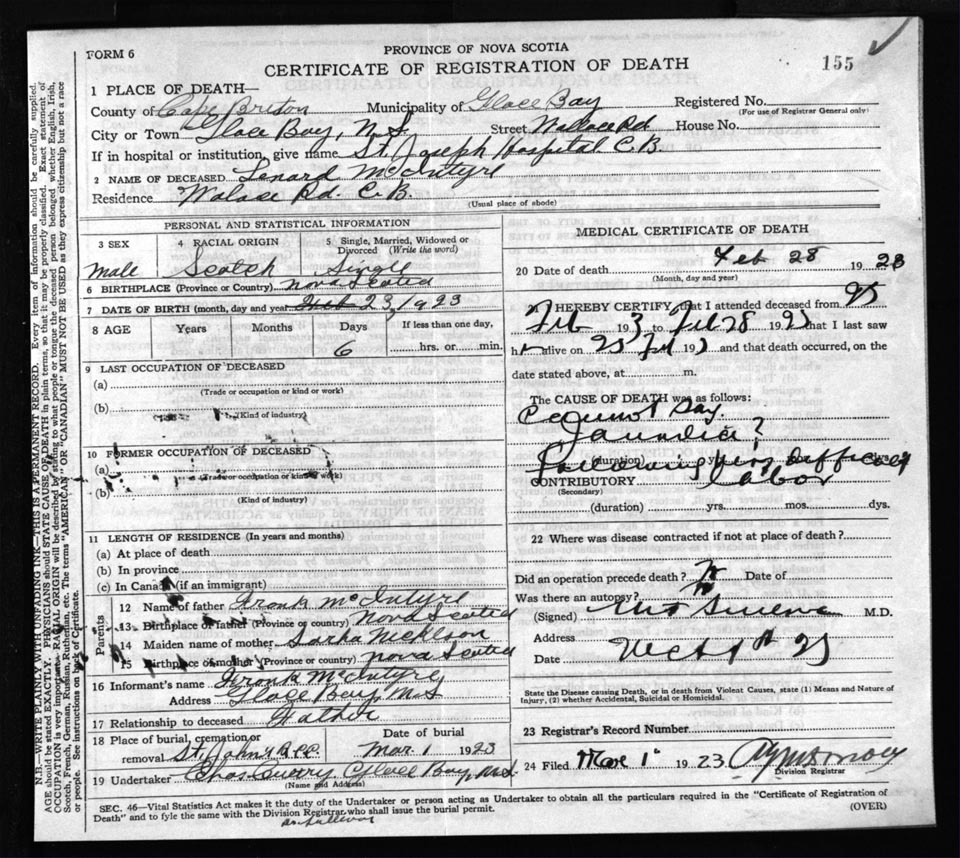 PROVINCE OF NOVA SCOTIA
FORM 6
CERTIFICATE OF REGISTRATION OF DEATH
155
1 PLACE OF DEATH—
County of Cape Briton Municipality of Glace Bay Registered No.
(For use of Registrar General only)
City or Town Glace Bay, N.S. Street Walace Rd House No.
If in hospital or institution, give name St. Joseph Hospital C.B.
2 NAME OF DECEASED Lenard McIntyre
Residence Walace Rd. C.B.
(Usual place of abode)
PERSONAL AND STATISTICAL INFORMATION
3 SEX Male
4 RACIAL ORIGIN Scotch
5 Single, Married, Widowed or Divorced (Write the word) Single
6 BIRTHPLACE (Province or Country) Nova Scotia
7 DATE OF BIRTH (month, day and year) Feb 23, 1923
8 AGE Years Months Days If less than one day,
6 hrs. or min.
9 LAST OCCUPATION OF DECEASED
(a)
(Trade or occupation or kind or work)
(b)
(Kind of industry)
10 FORMER OCCUPATION OF DECEASED
(a)
(Trade or occupation or kind of work)
(b)
(Kind of industry)
11 LENGTH OF RESIDENCE (In years and months)
(a) At place of death
(b) In province
(c) In Canada (if an immigrant)
Parents
12 Name of father Frank McIntyre
13 Birthplace of father (Province or country) Nova Scotia
14 Maiden name of mother Sarha
15 Birthplace of mother (Province or country) Nova Scotia
16 Informant's name Frank McIntyre
Address Glace Bay, N.S
17 Relationship to deceased Father
18 Place of burial, cremation or removal St. Johns
Date of burial Mar. 1 1923
19 Undertaker Chas Curry Glace Bay, N.S.
(Name and Address)
MEDICAL CERTIFICATE OF DEATH
20 Date of death Feb 28 1923
(Month, day and year)
I HEREBY CERTIFY that I attended deceased from
Feb 19 to Feb 28 19 that I last saw
h alive on 19 and that death occurred, on the
date stated above, at m.
The CAUSE OF DEATH was as follows:
Cannot Say
Jaundice?
(duration) yrs. mos. dys.
following very difficult
CONTRIBUTORY labor
(Secondary)
(duration) yrs. mos. dys.
22 Where was disease contracted if not at place of death?
Did an operation precede death? Date of
Was there an autopsy?
(Signed) M.D.
Address
Date
State the Disease causing Death, or in death from Violent Causes, state (1) Means and Nature of
Injury, (2) whether Accidental, Suicidal or Homicidal.
23 Registrar's Record Number
24 Filed Mar 1 1923
Division Registrar
SEC. 46—Vital Statistics Act makes it the duty of the Undertaker or person acting as Undertaker to obtain all the particulars required in the "Certificate of Registration of
Death" and to fyle the same with the Division Registrar who shall issue the burial permit.
(OVER)
N.B.—WRITE PLAINLY WITH UNFADING INK—THIS IS A PERMANENT RECORD. Every item of information should be carefully supplied.
AGE should be stated EXACTLY. PHYSICIANS should STATE CAUSE OF DEATH in plain terms, so that it may be properly classified. Exact statement of
OCCUPATION is very important. RACIAL ORIGIN will be described by stating to what people or tongue the deceased person belonged whether English, Irish,
Scotch, French, German, Russian, Ruthenian, etc. The terms "AMERICAN" OR "CANADIAN" MUST NOT BE USED as they express citizenship but not a race
or people. See instructions on back of Certificate.